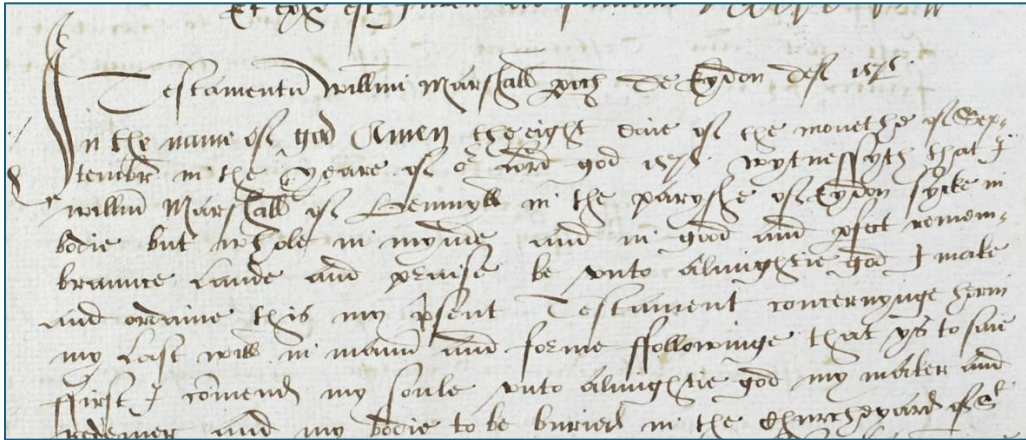 Testamentū Willmi Marshall de Eydon
In the name of god Amen the eight daie of the monethe of Sep-
tembr in the yeare of or Lord god 1575 wytnessyth that I
willm Marshall of in the paryshe of Eydon sycke in
bodie but whole in mynde and in good and pfect remem-
braunce Laude and praise be vnto Almightie god I make
and ordaine this my psent Testament concernynge herin
my Last will in mann and forme ffollowinge that ys to saie
ffirst I comend my soule vnto Almightie god my maker and
redemer and my bodie to be buried in the churcheyard of